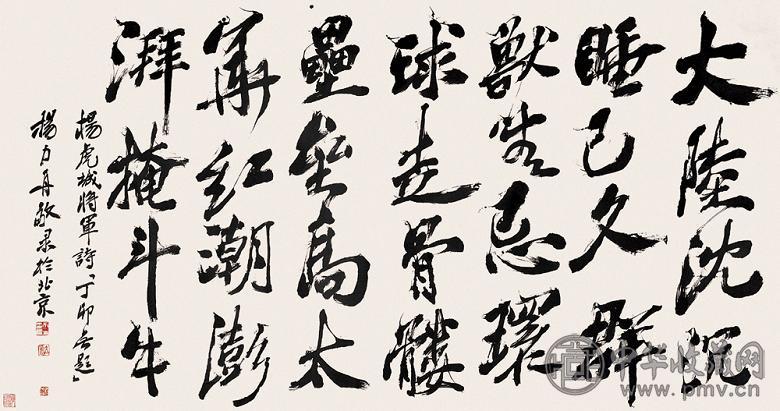 大陸沈沉
睡已久群
獸无忌環
球走骨髏
壘垒高太
華紅潮澎
湃掩斗牛
楊虎城將軍詩、丁卯无題」
楊力舟敬录於北京
中华收藏网
www.pmv.cn